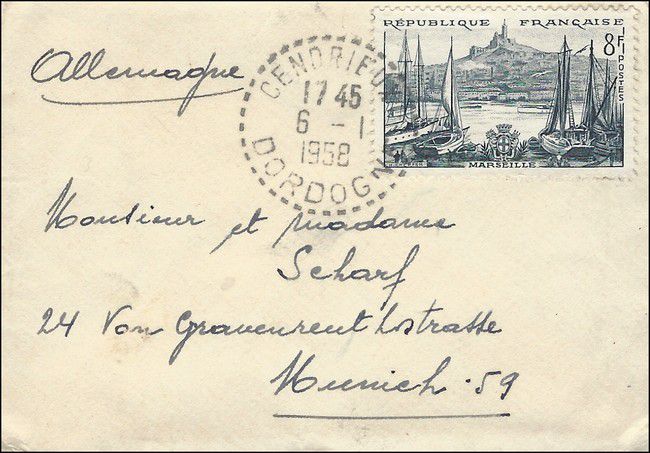 RÉPUBLIQUE FRANÇAISE
8F
POSTES
MARSEILLE
CENDRIEUX
17 45
6 - 1
1958
DORDOGNE
Allemagne
Monsieur et madame
Scharf
24 Von Gravenreuthstrasse
Munich · 59